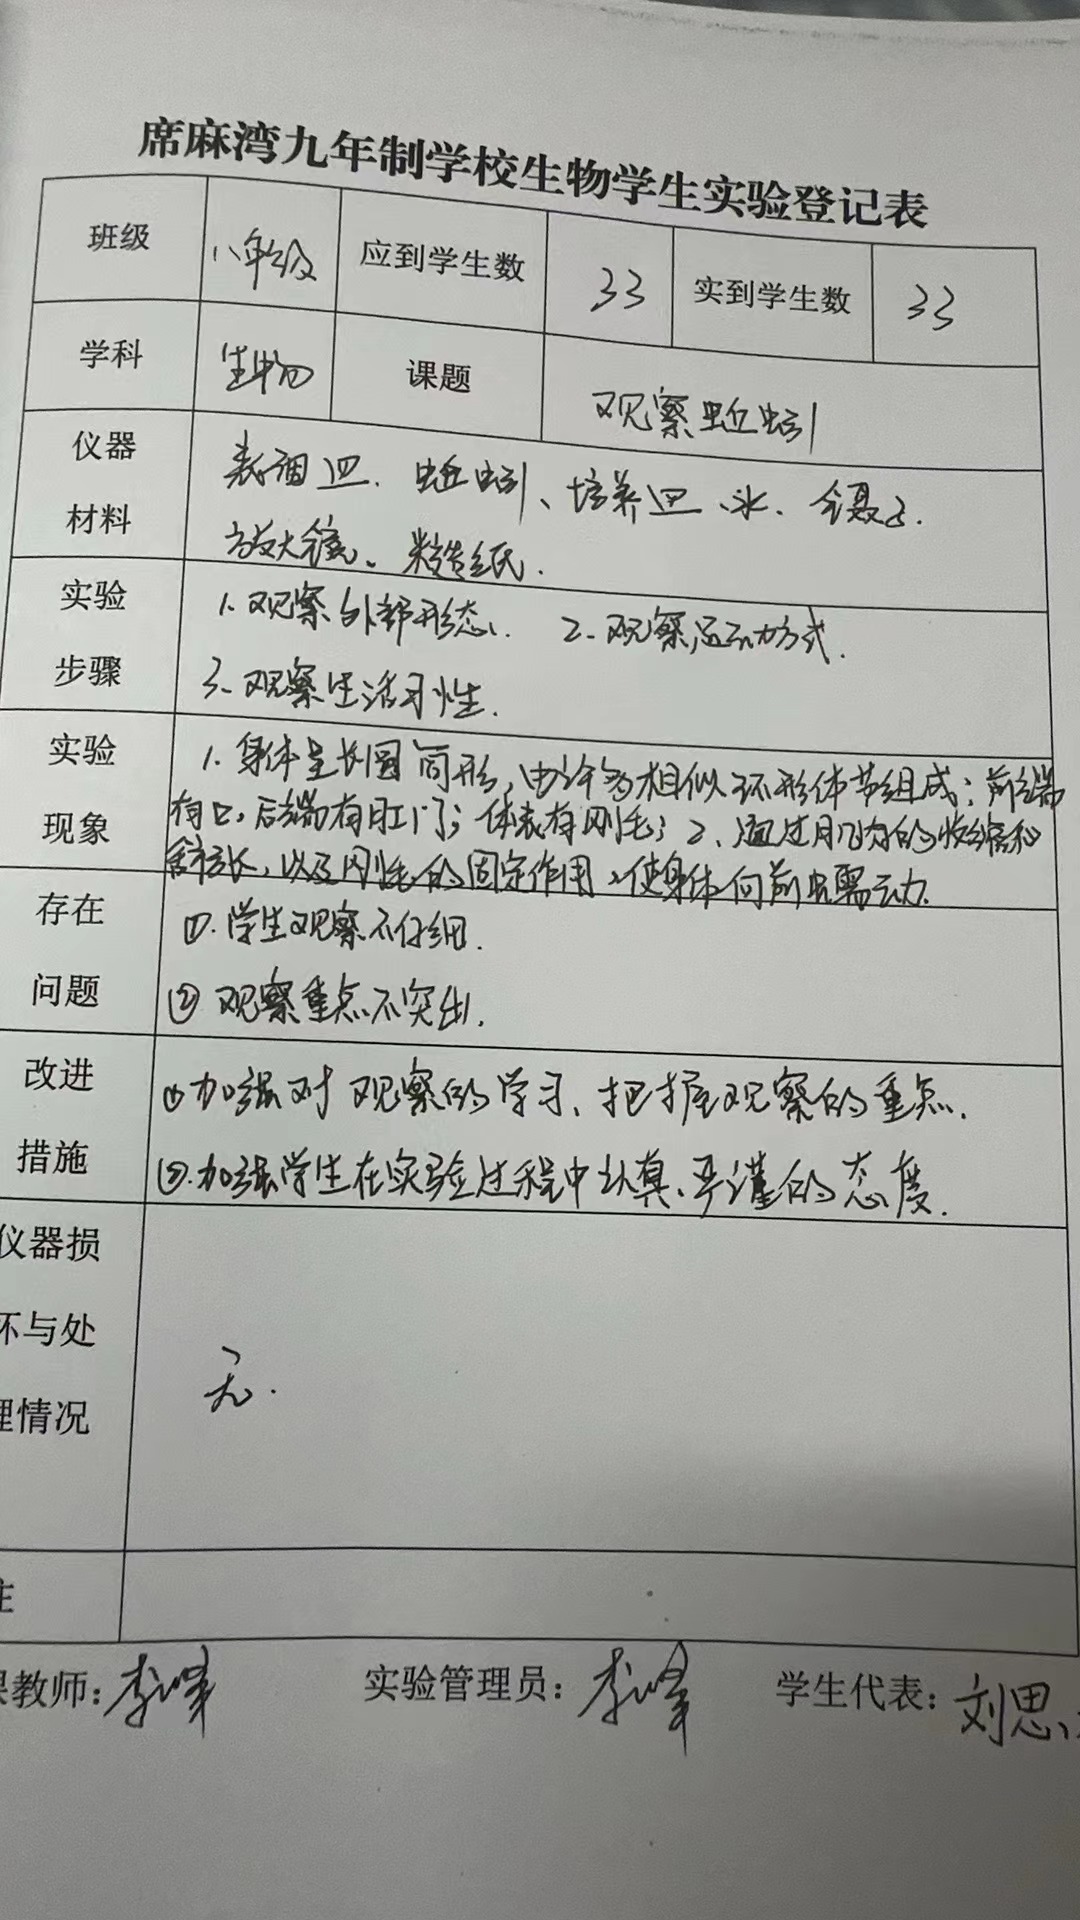 席麻湾九年制学校生物学生实验登记表
班级 八年级 应到学生数 33 实到学生数 33
学科 生物 课题 观察蚯蚓
仪器
材料
表面皿、蚯蚓、培养皿、水、镊子、
放大镜、糙纸.
实验
步骤
1、观察外部形态、 2、观察运动方式.
3、观察生活习性.
实验
现象
1、身体呈长圆筒形,由许多相似环形体节组成;前端
有口,后端有肛门;体表有刚毛;2、通过肌肉的收缩和
舒张,以及刚毛的固定作用,使身体向前蠕动.
存在
问题
①.学生观察不仔细.
② 观察重点不突出.
改进
措施
①加强对观察的学习、把握观察的重点.
②.加强学生在实验过程中认真、严谨的态度.
仪器损
坏与处
理情况
无.
注
课教师: 李峰 实验管理员: 李峰 学生代表: 刘思